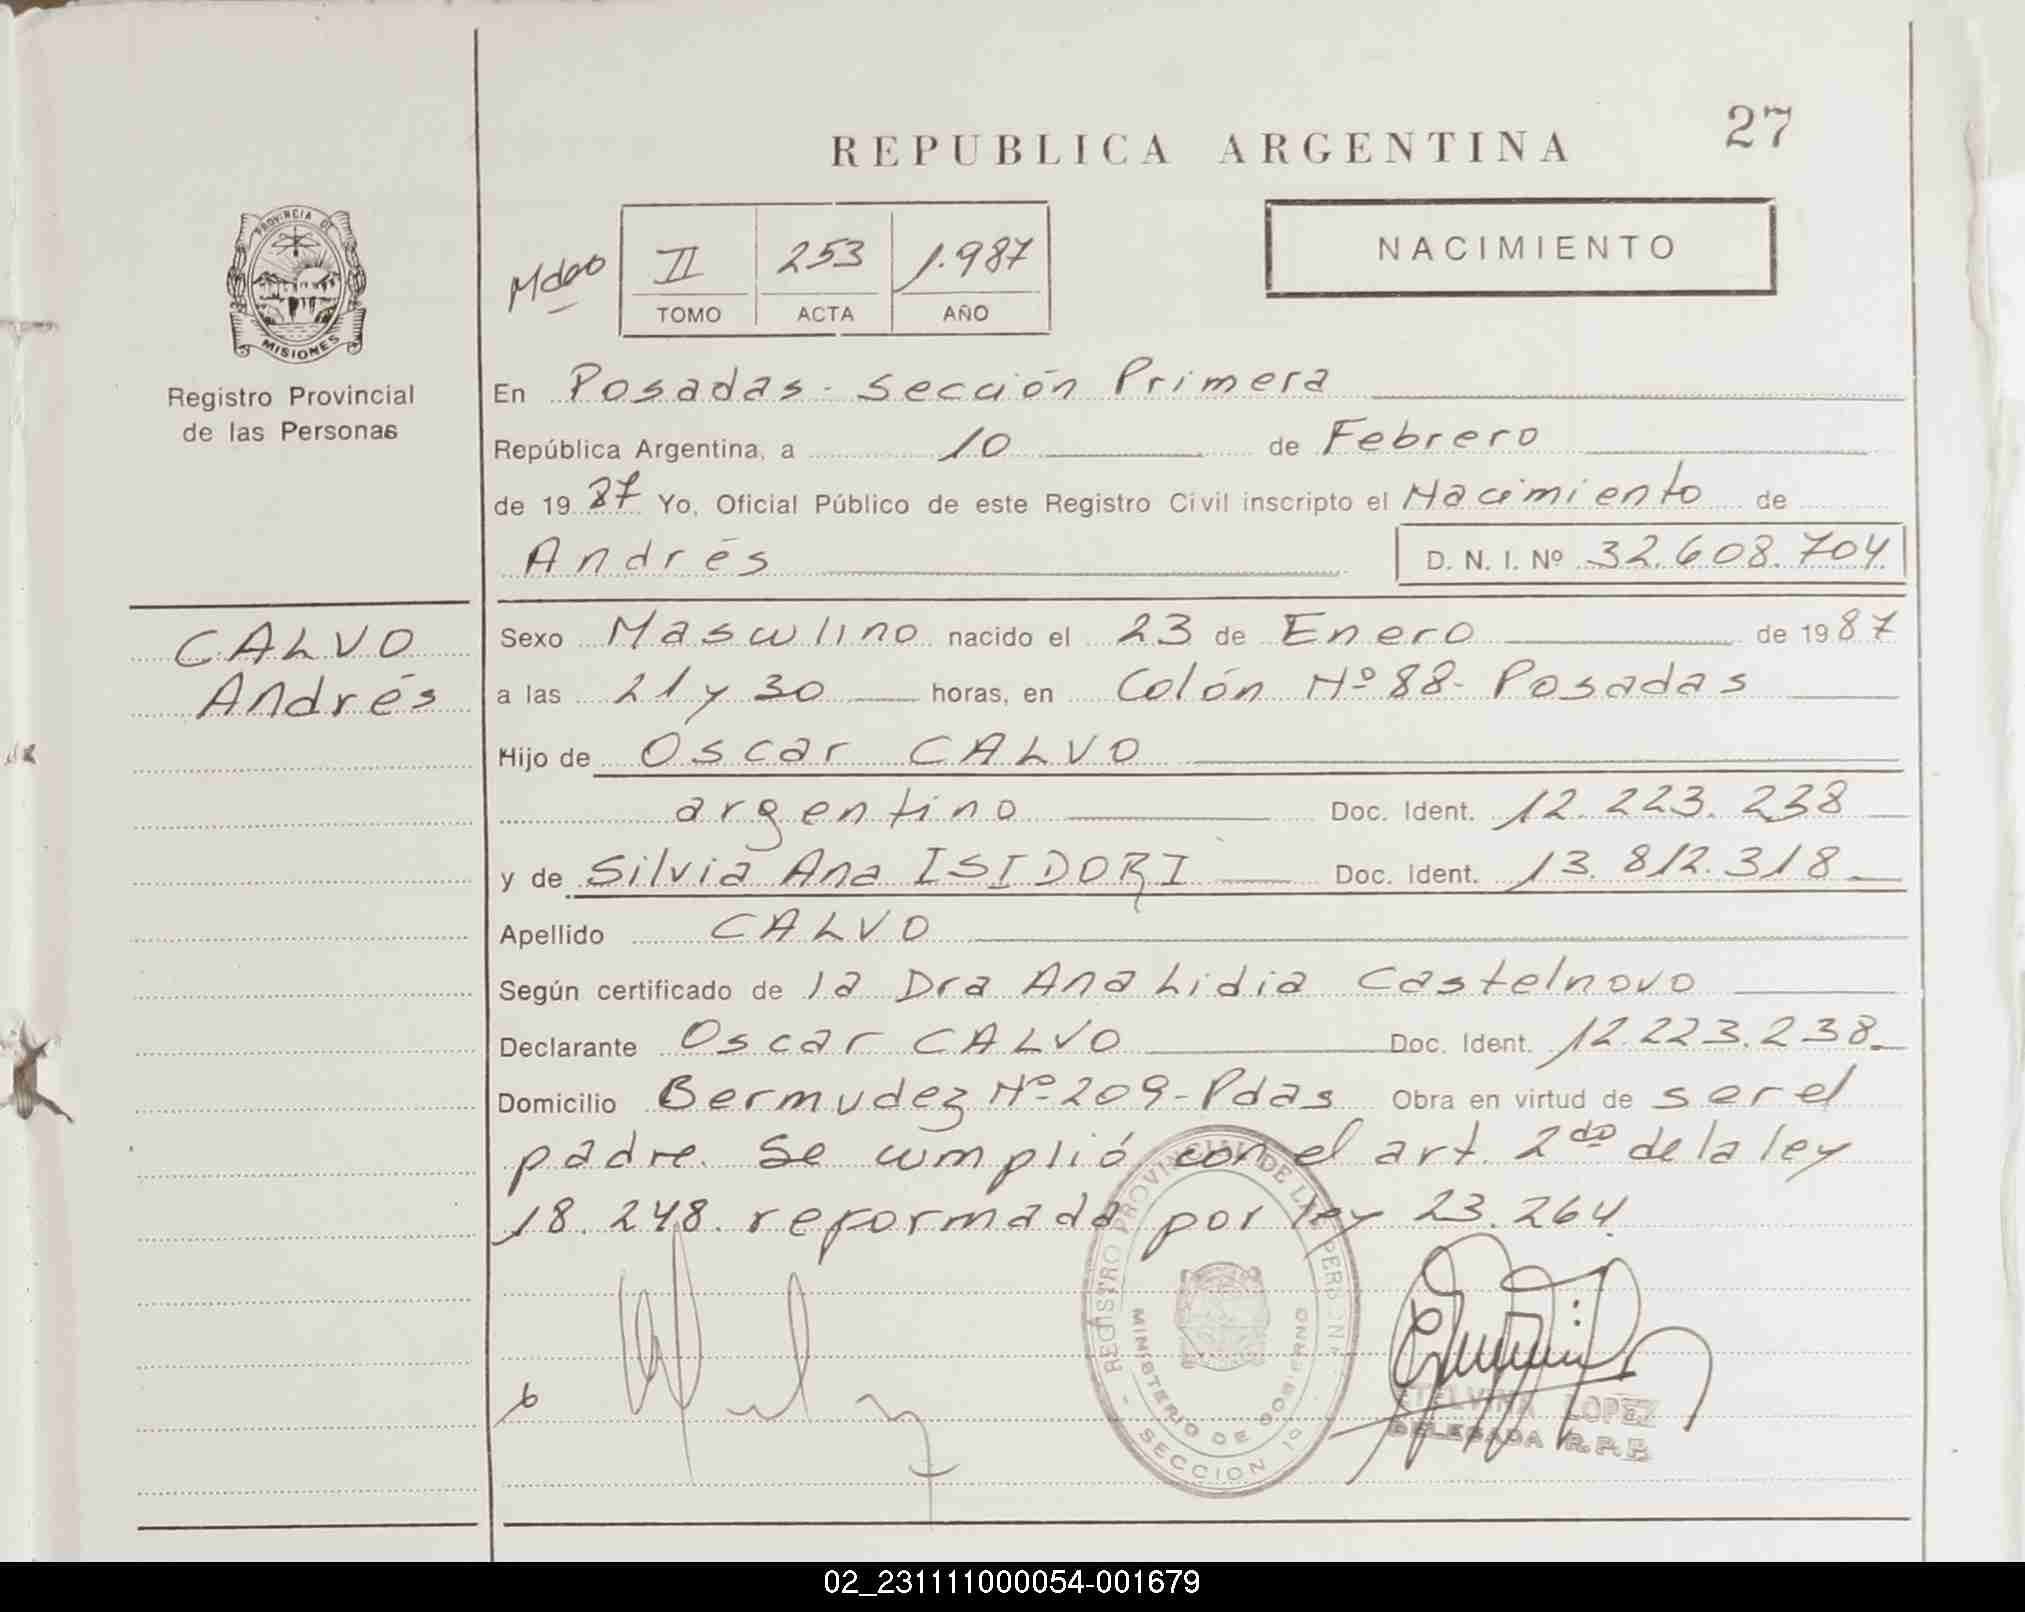 27
REPUBLICA ARGENTINA
PROVINCIA DE
MISIONES
Registro Provincial
de las Personas
II 253 1.987
TOMO ACTA AÑO
NACIMIENTO
En Posadas - Sección Primera
República Argentina, a 10 de Febrero
de 1987 Yo, Oficial Público de este Registro Civil inscripto el Nacimiento de
Andrés D. N. I. Nº 32.608.704
CALVO
Andrés
Sexo Masculino nacido el 23 de Enero de 1987
a las 21 y 30 horas, en Colón Nº 88 - Posadas
Hijo de Oscar CALVO
argentino Doc. Ident. 12.223.238
y de Silvia Ana ISIDORI Doc. Ident. 13.812.318
Apellido CALVO
Según certificado de la Dra Ana Lidia Castelnovo
Declarante Oscar CALVO Doc. Ident. 12.223.238
Domicilio Bermudez Nº 209 - Pdas Obra en virtud de ser el
padre. Se cumplió con el art. 2do de la ley
18.248. reformada por ley 23.264.
REGISTRO PROVINCIAL DE LAS PERSONAS
MINISTERIO DE GOBIERNO
SECCION 1º
ETELVINA LOPEZ
DELEGADA R.P.P.
02_231111000054-001679